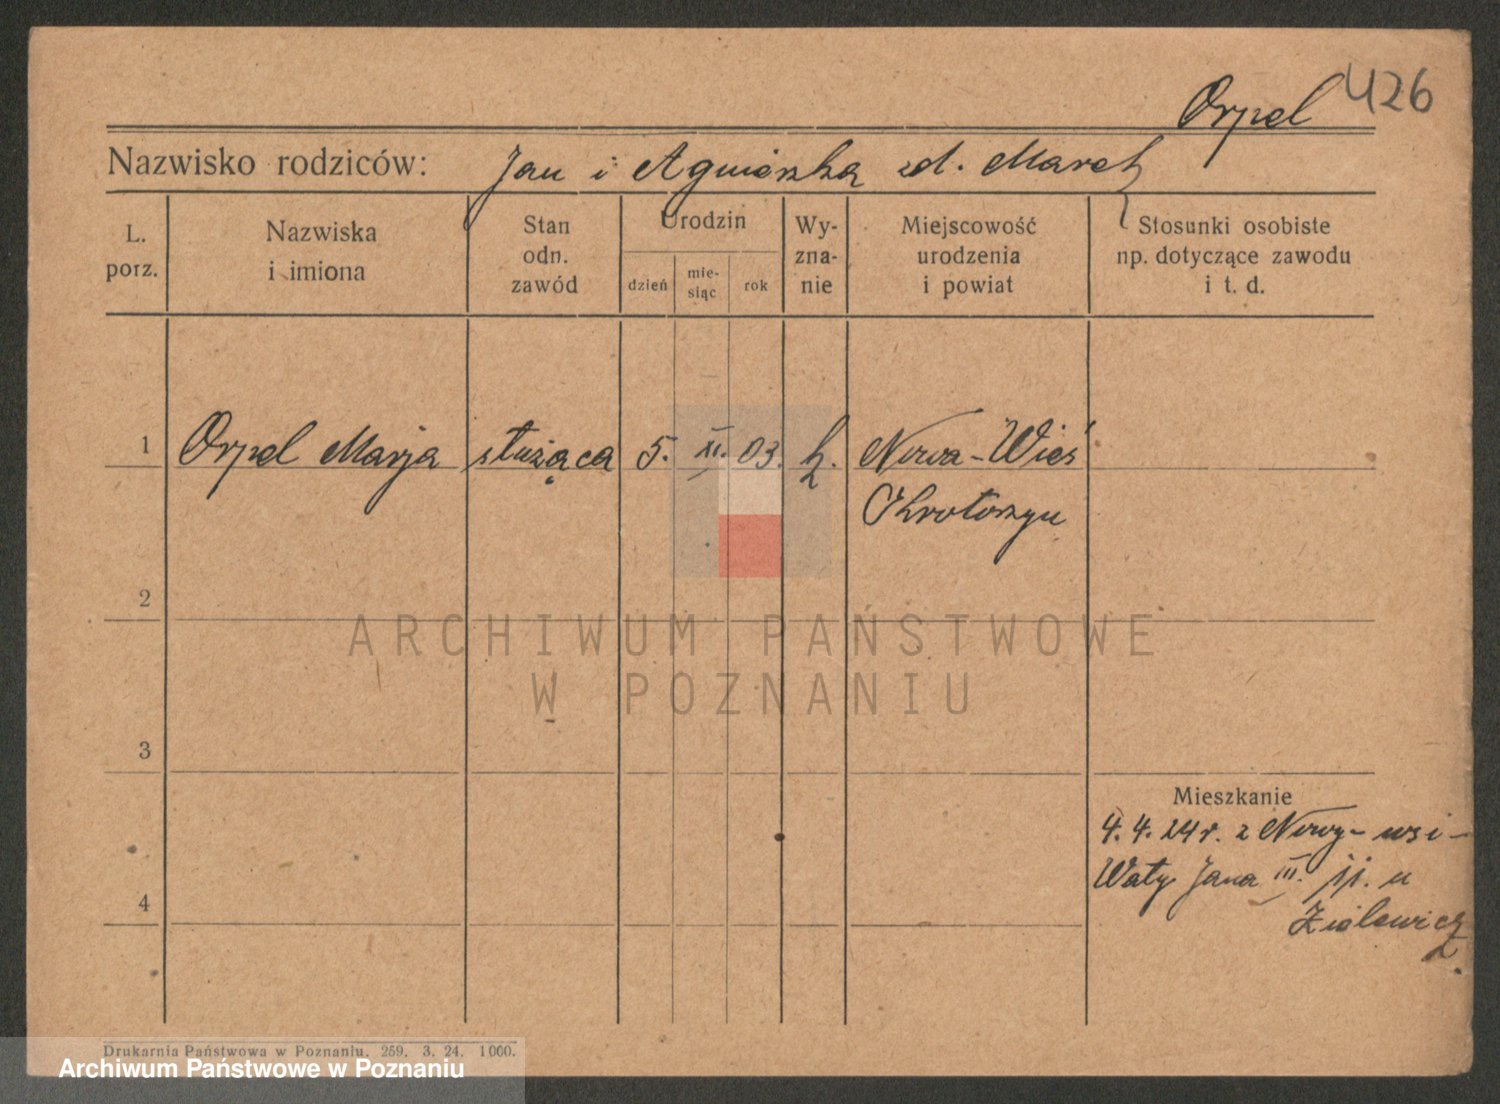 Orpel 426
Nazwisko rodziców: Jan i Agnieszka zd. Marek
L. porz.
Nazwiska i imiona
Stan odn. zawód
Urodzin
dzień
mie-siąc
rok
Wy-zna-nie
Miejscowość urodzenia i powiat
Stosunki osobiste np. dotyczące zawodu i t. d.
1 Orpel Marja służąca 5. XI. 03. k. Nowa-Wieś
Krotoszyn
2
ARCHIWUM PAŃSTWOWE
W POZNANIU
3
Mieszkanie
4. 4. 24 r. z Nowy-wsi-
Wały Jana III. u
4
Drukarnia Państwowa w Poznaniu. 259. 3. 24. 1000.
Archiwum Państwowe w Poznaniu